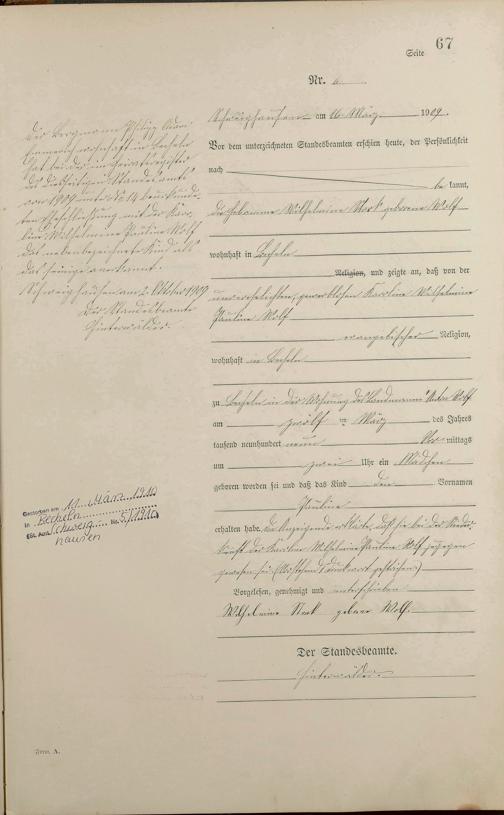 Seite 67
Nr. 6
Schweighausen am 16. März 1909.
Vor dem unterzeichneten Standesbeamten erschien heute, der Persönlichkeit
nach
be kannt,
die Hebamme Wilhelmine Stark geborene Wolf
wohnhaft in Becheln
Religion, und zeigte an, daß von der
unverehelichten, gewerblosen Karoline Wilhelmine
Pauline Wolf
evangelischer Religion,
wohnhaft in Becheln
zu Becheln in der Wohnung des Landmanns Wolf
am zwölf ten März des Jahres
tausend neunhundert neun Vor mittags
um zwei Uhr ein Mädchen
geboren worden sei und daß das Kind den Vornamen
Pauline
erhalten habe. Die Anzeigende erklärte, daß sie bei der Nieder-
kunft der Karoline Wilhelmine Pauline Wolf zugegen
gewesen sei. (Vorstehend 1 Druckwort gestrichen)
Vorgelesen, genehmigt und unterschrieben
Wilhelmine Stark geborene Wolf.
Der Standesbeamte.
Hinterwälder.
Der Bergmann Philipp
wohnhaft in Becheln
hat bei der im Heiratsregister
des diesseitigen Standesamts
von 1909 unter No 14 beurkunde-
ten Eheschließung mit der Karo-
line Wilhelmine Pauline Wolf
das nebenbezeichnete Kind als
das seinige anerkannt.
Schweighausen am 2. Oktober 1909
Der Standesbeamte
Hinterwälder.
Gestorben am 11. März 1910
in Becheln
(St. Amt Schweig- Nr. 5/1910)
hausen
Form. A.